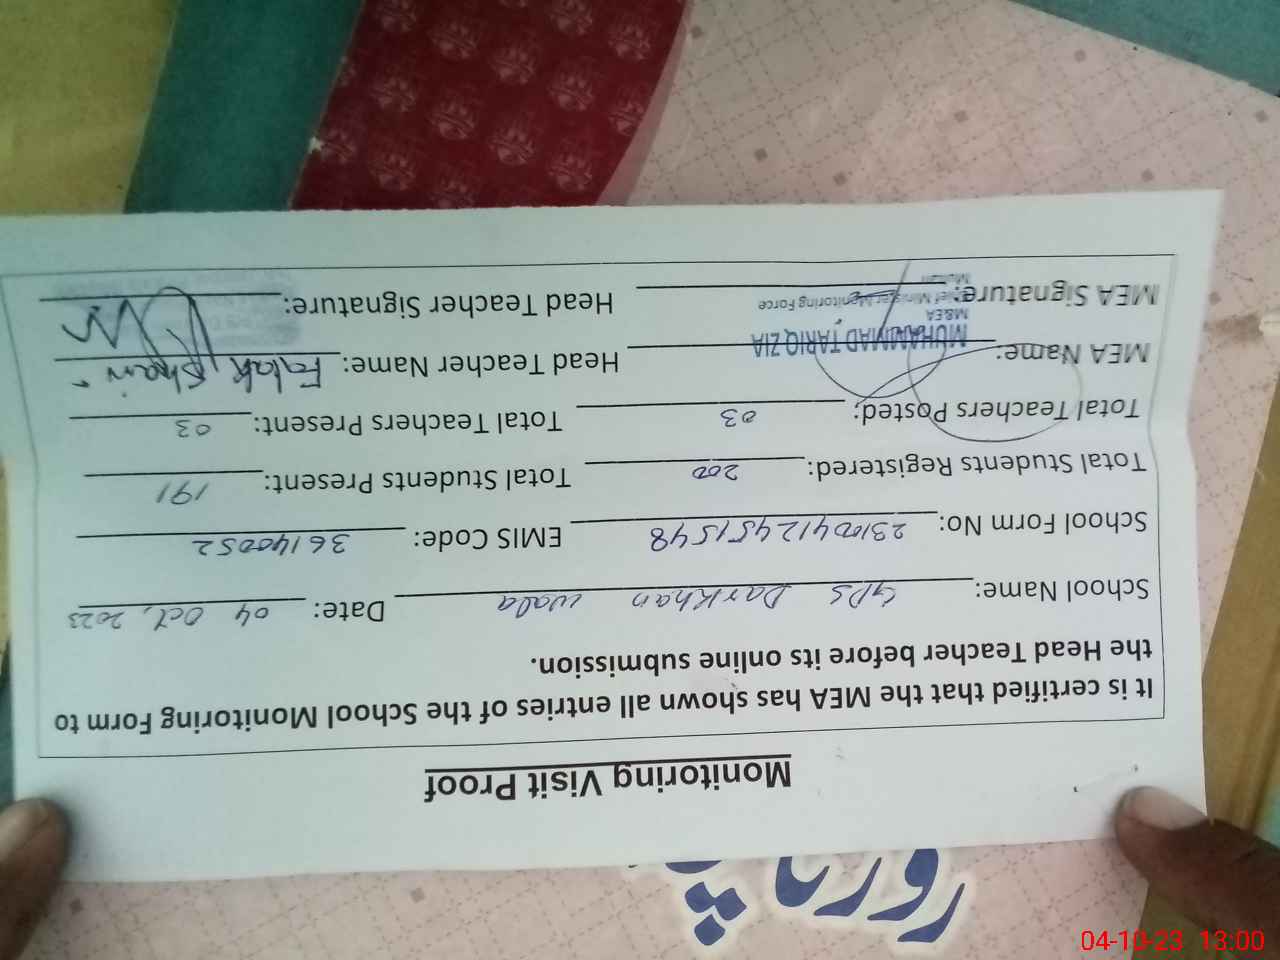 Monitoring Visit Proof
It is certified that the MEA has shown all entries of the School Monitoring Form to
the Head Teacher before its online submission.
School Name: GPS Darkhan wala Date: 04 Oct, 2023
School Form No: 231004124515148 EMIS Code: 36140052
Total Students Registered: 200 Total Students Present: 191
Total Teachers Posted: 03 Total Teachers Present: 03
MEA Name: MUHAMMAD TARIQ ZIA Head Teacher Name: Falak Shair
M&EA
Chief Minister Monitoring Force
Multan
MEA Signature: Head Teacher Signature:
04-10-23 13:00